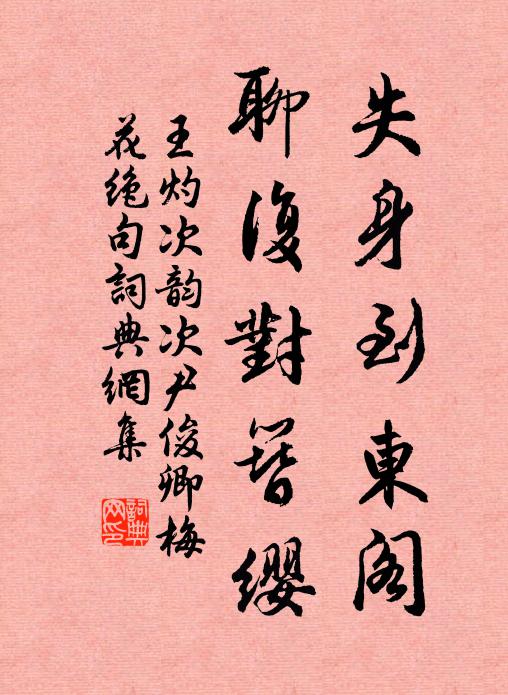 失身到東阁
聊復對簪纓
王灼次韵次尹俊卿梅
花绝句詞典網集
詞典
网印